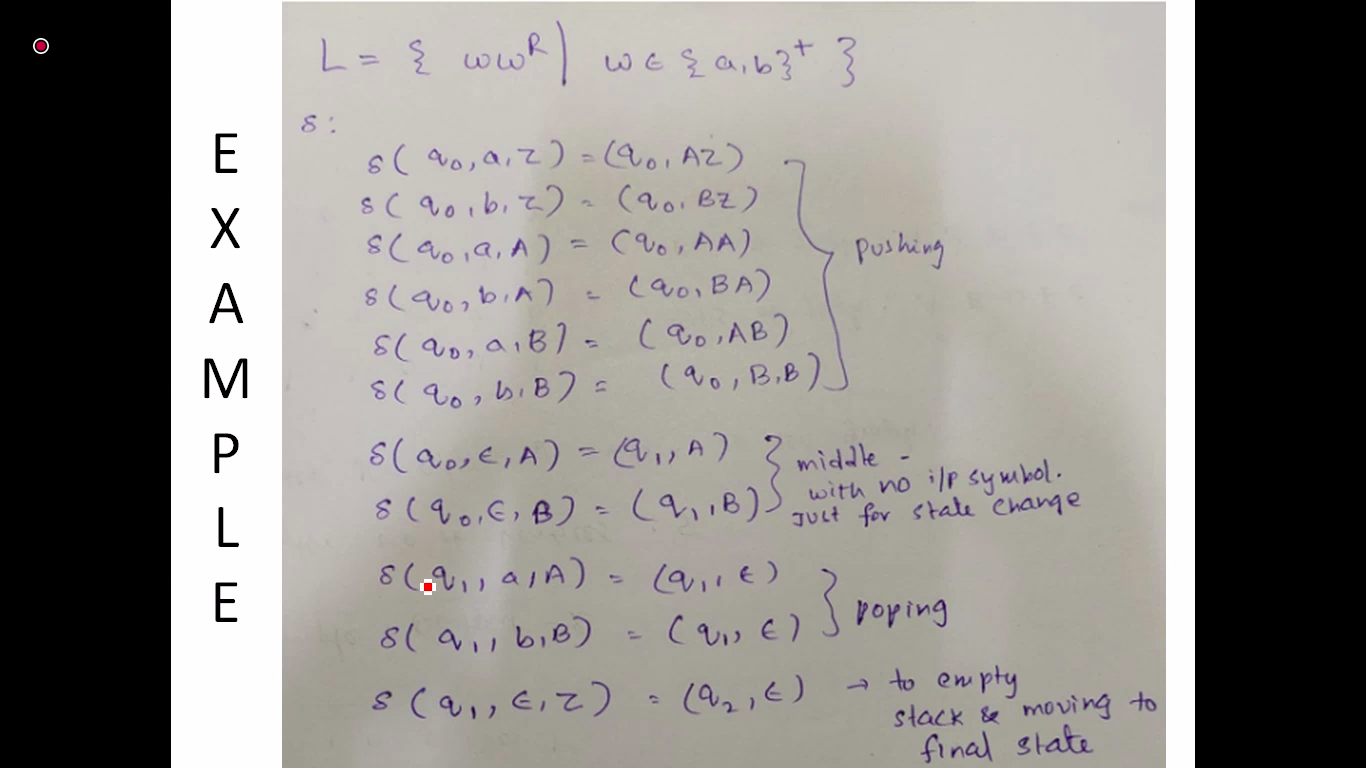 EXAMPLE
L = { ωω^R | ω ∈ {a,b}^+ }
δ:
δ( q₀, a, z ) = (q₀, AZ)
δ( q₀, b, z ) = (q₀, BZ)
δ( q₀, a, A ) = (q₀, AA)
δ( q₀, b, A ) = (q₀, BA)
δ( q₀, a, B ) = (q₀, AB)
δ( q₀, b, B ) = (q₀, B,B)
pushing
δ( q₀, ∈, A ) = (q₁, A)
δ( q₀, ∈, B ) = (q₁, B)
middle -
with no i/p symbol.
Just for state change
δ( q₁, a, A ) = (q₁, ∈)
δ( q₁, b, B ) = (q₁, ∈)
poping
δ( q₁, ∈, z ) = (q₂, ∈) → to empty
stack & moving to
final state